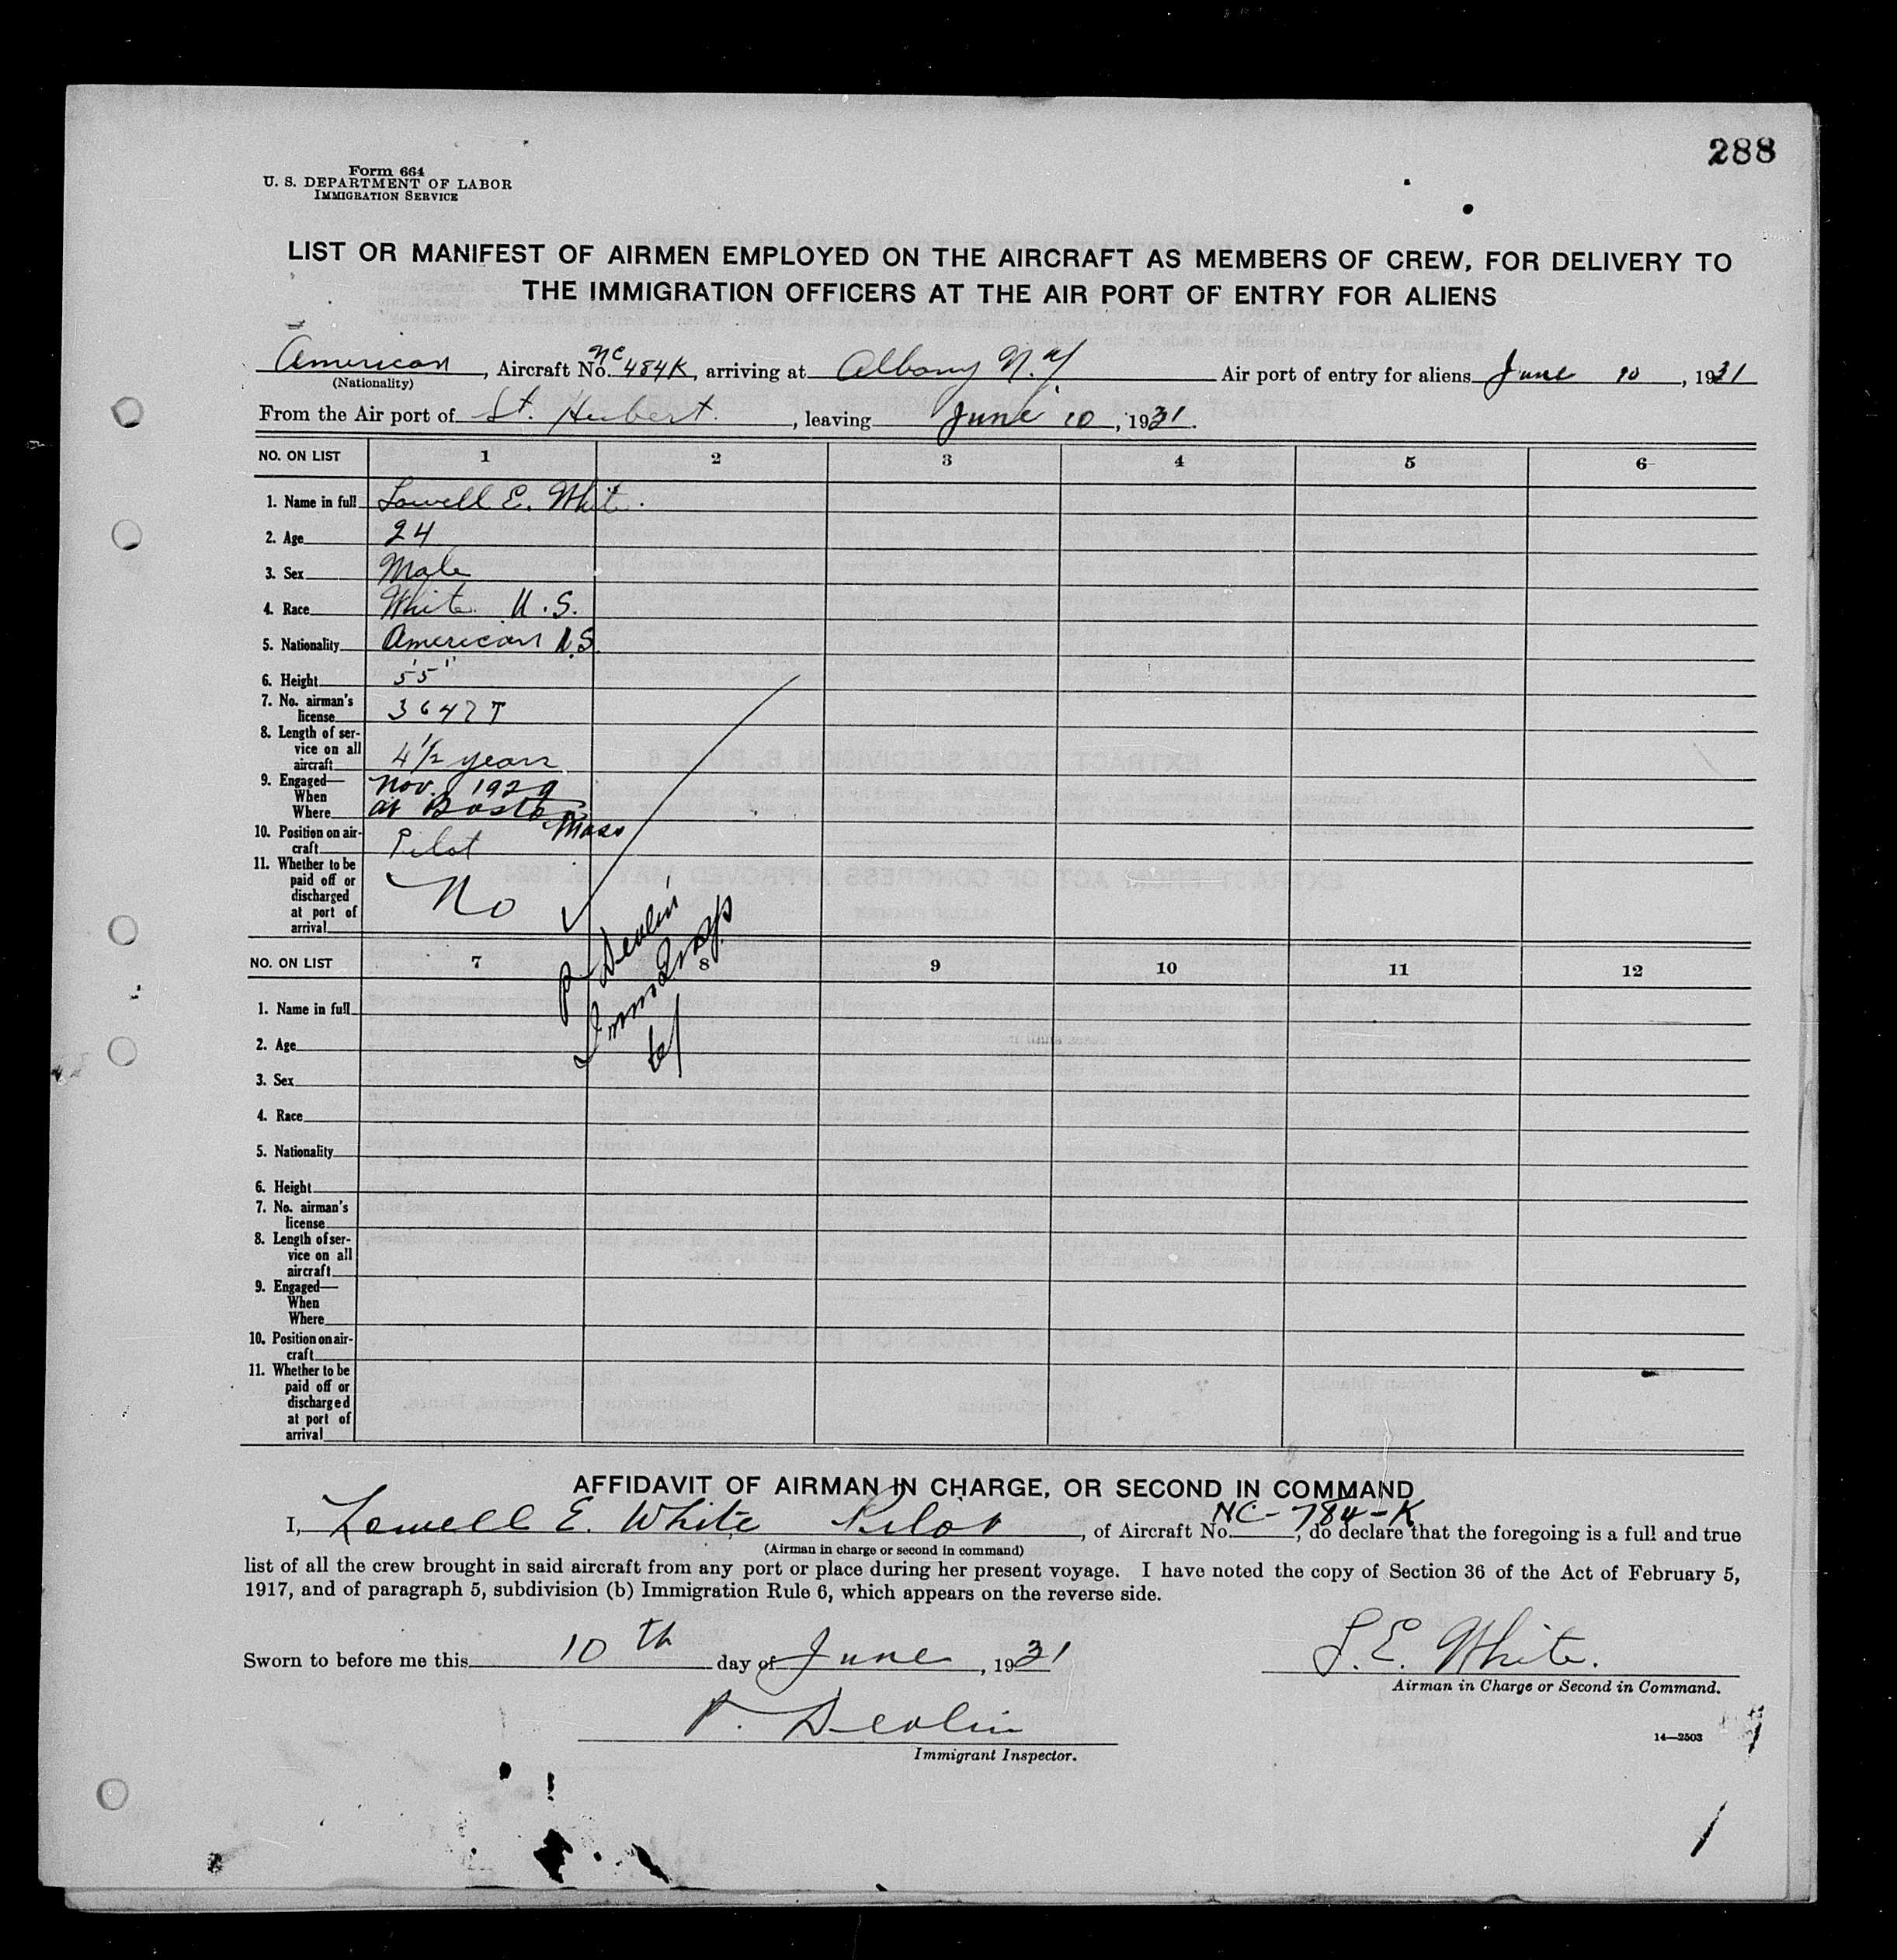 288
Form 664
U. S. DEPARTMENT OF LABOR
IMMIGRATION SERVICE
LIST OR MANIFEST OF AIRMEN EMPLOYED ON THE AIRCRAFT AS MEMBERS OF CREW, FOR DELIVERY TO
THE IMMIGRATION OFFICERS AT THE AIR PORT OF ENTRY FOR ALIENS
American, Aircraft No. NC 484K, arriving at Albany N.Y. Air port of entry for aliens June 10, 1931
(Nationality)
From the Air port of St. Hubert., leaving June 10, 1931.
NO. ON LIST 1 2 3 4 5 6
1. Name in full Lowell E. White.
2. Age 24
3. Sex Male
4. Race White U.S.
5. Nationality American U.S.
6. Height 5'5"
7. No. airman's
license 3647 T
8. Length of ser-
vice on all
aircraft 4 1/2 years
9. Engaged—
When Nov. 1929
Where at Boston Mass
10. Position on air-
craft Pilot
11. Whether to be
paid off or
discharged
at port of
arrival No
P. Devlin
Imm Insp
NO. ON LIST 7 8 9 10 11 12
1. Name in full
2. Age
3. Sex
4. Race
5. Nationality
6. Height
7. No. airman's
license
8. Length of ser-
vice on all
aircraft
9. Engaged—
When
Where
10. Position on air-
craft
11. Whether to be
paid off or
discharged
at port of
arrival
AFFIDAVIT OF AIRMAN IN CHARGE, OR SECOND IN COMMAND
I, Lowell E. White Pilot, of Aircraft No. NC-784-K, do declare that the foregoing is a full and true
(Airman in charge or second in command)
list of all the crew brought in said aircraft from any port or place during her present voyage. I have noted the copy of Section 36 of the Act of February 5,
1917, and of paragraph 5, subdivision (b) Immigration Rule 6, which appears on the reverse side.
Sworn to before me this 10th day of June, 1931
L. E. White.
Airman in Charge or Second in Command.
P. Devlin
Immigrant Inspector.
14—2503